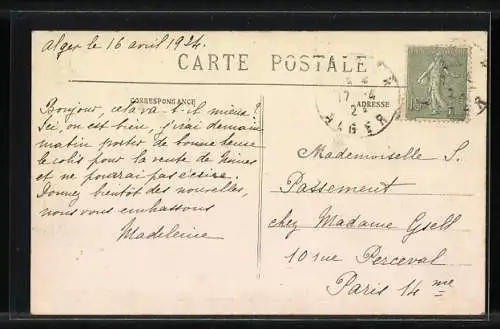 Alger le 16 avril 1924.
CARTE POSTALE
CORRESPONDANCE
ADRESSE
Bonjour, cela va-t-il mieux?
Ici, on est bien, j'irai demain
matin porter de bonne heure
le colis pour la vente de
et ne pourrai pas écrire.
Donnez bientôt des nouvelles,
nous vous embrassons
Madeleine
17-4
ALGER
Mademoiselle S.
Passement
chez Madame Gsell
10 rue Perceval
Paris 14me